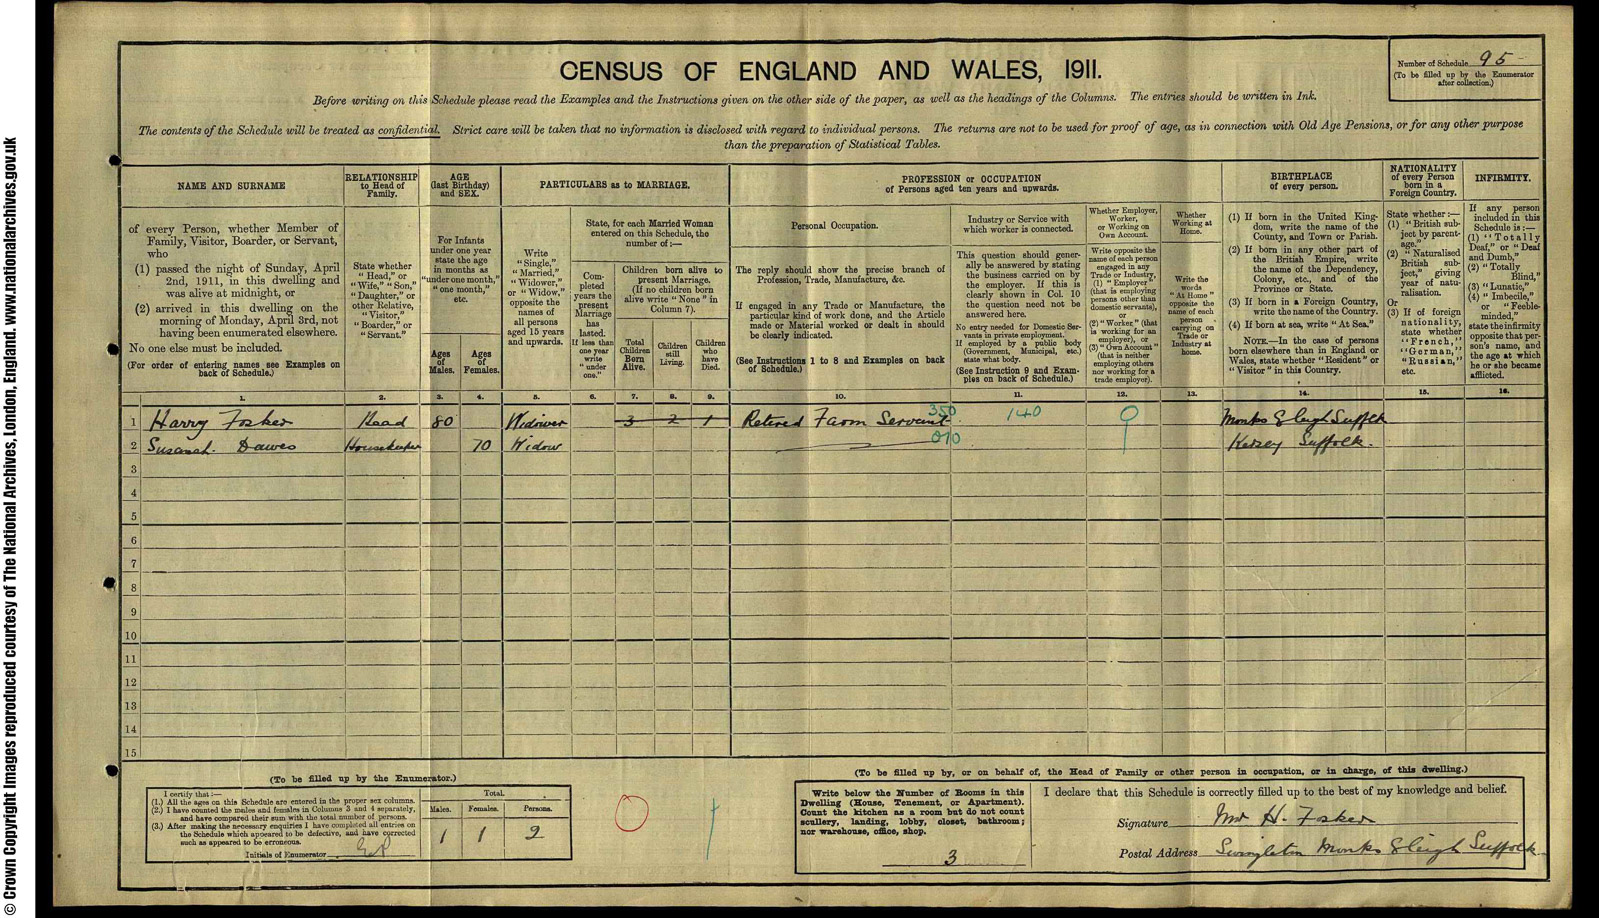 CENSUS OF ENGLAND AND WALES, 1911.
Number of Schedule 95
(To be filled up by the Enumerator
after collection.)
Before writing on this Schedule please read the Examples and the Instructions given on the other side of the paper, as well as the headings of the Columns. The entries should be written in Ink.
The contents of the Schedule will be treated as confidential. Strict care will be taken that no information is disclosed with regard to individual persons. The returns are not to be used for proof of age, as in connection with Old Age Pensions, or for any other purpose
than the preparation of Statistical Tables.
NAME AND SURNAME
of every Person, whether Member of
Family, Visitor, Boarder, or Servant,
who
(1) passed the night of Sunday, April
2nd, 1911, in this dwelling and
was alive at midnight, or
(2) arrived in this dwelling on the
morning of Monday, April 3rd, not
having been enumerated elsewhere.
No one else must be included.
(For order of entering names see Examples on
back of Schedule.)
RELATIONSHIP
to Head of
Family.
State whether
"Head," or
"Wife," "Son,"
"Daughter," or
other Relative,
"Visitor,"
"Boarder," or
"Servant."
AGE
(last Birthday)
and SEX.
For Infants
under one year
state the age
in months as
"under one month,"
"one month,"
etc.
Ages
of
Males.
Ages
of
Females.
PARTICULARS as to MARRIAGE.
Write
"Single,"
"Married,"
"Widower,"
or "Widow,"
opposite the
names of
all persons
aged 15 years
and upwards.
State, for each Married Woman
entered on this Schedule, the
number of:—
Com-
pleted
years the
present
Marriage
has
lasted.
If less than
one year
write
"under
one."
Children born alive to
present Marriage.
(If no children born
alive write "None" in
Column 7).
Total
Children
Born
Alive.
Children
still
Living.
Children
who
have
Died.
PROFESSION or OCCUPATION
of Persons aged ten years and upwards.
Personal Occupation.
The reply should show the precise branch of
Profession, Trade, Manufacture, &c.
If engaged in any Trade or Manufacture, the
particular kind of work done, and the Article
made or Material worked or dealt in should
be clearly indicated.
(See Instructions 1 to 8 and Examples on back
of Schedule.)
Industry or Service with
which worker is connected.
This question should gener-
ally be answered by stating
the business carried on by
the employer. If this is
clearly shown in Col. 10
the question need not be
answered here.
No entry needed for Domestic Ser-
vants in private employment.
If employed by a public body
(Government, Municipal, etc.)
state what body.
(See Instruction 9 and Exam-
ples on back of Schedule.)
Whether Employer,
Worker,
or Working on
Own Account.
Write opposite the
name of each person
engaged in any
Trade or Industry,
(1) "Employer"
(that is employing
persons other than
domestic servants),
or
(2) "Worker" (that
is working for an
employer), or
(3) "Own Account"
(that is neither
employing others
nor working for a
trade employer).
Whether
Working at
Home.
Write the
words
"At Home"
opposite the
name of each
person
carrying on
Trade or
Industry at
home.
BIRTHPLACE
of every person.
(1) If born in the United King-
dom, write the name of the
County, and Town or Parish.
(2) If born in any other part of
the British Empire, write
the name of the Dependency,
Colony, etc., and of the
Province or State.
(3) If born in a Foreign Country,
write the name of the Country.
(4) If born at sea, write "At Sea."
NOTE.—In the case of persons
born elsewhere than in England or
Wales, state whether "Resident" or
"Visitor" in this Country.
NATIONALITY
of every Person
born in a
Foreign Country.
State whether:—
(1) "British sub-
ject by parent-
age,"
(2) "Naturalised
British sub-
ject," giving
year of natu-
ralisation.
Or
(3) If of foreign
nationality,
state whether
"French,"
"German,"
"Russian,"
etc.
INFIRMITY.
If any person
included in this
Schedule is:—
(1) "Totally
Deaf," or "Deaf
and Dumb,"
(2) "Totally
Blind,"
(3) "Lunatic,"
(4) "Imbecile,"
or "Feeble-
minded,"
state the infirmity
opposite that per-
son's name, and
the age at which
he or she became
afflicted.
1. 2. 3. 4. 5. 6. 7. 8. 9. 10. 11. 12. 13. 14. 15. 16.
1 Harry Fosker Head 80 Widower 3 2 1 Retired Farm Servant 350 140 0 Monks Eleigh Suffolk
2 Susanah. Dawes Housekeeper 70 Widow 010 Kersey Suffolk.
3
4
5
6
7
8
9
10
11
12
13
14
15
(To be filled up by the Enumerator.)
I certify that:—
(1.) All the ages on this Schedule are entered in the proper sex columns.
(2.) I have counted the males and females in Columns 3 and 4 separately,
and have compared their sum with the total number of persons.
(3.) After making the necessary enquiries I have completed all entries on
the Schedule which appeared to be defective, and have corrected
such as appeared to be erroneous.
Initials of Enumerator
Total.
Males. Females. Persons.
1 1 2
(To be filled up by, or on behalf of, the Head of Family or other person in occupation, or in charge, of this dwelling.)
Write below the Number of Rooms in this
Dwelling (House, Tenement, or Apartment).
Count the kitchen as a room but do not count
scullery, landing, lobby, closet, bathroom;
nor warehouse, office, shop.
3
I declare that this Schedule is correctly filled up to the best of my knowledge and belief.
Signature Mr H. Fosker
Postal Address Swingleton Monks Eleigh Suffolk
© Crown Copyright Images reproduced courtesy of The National Archives, London, England. www.nationalarchives.gov.uk